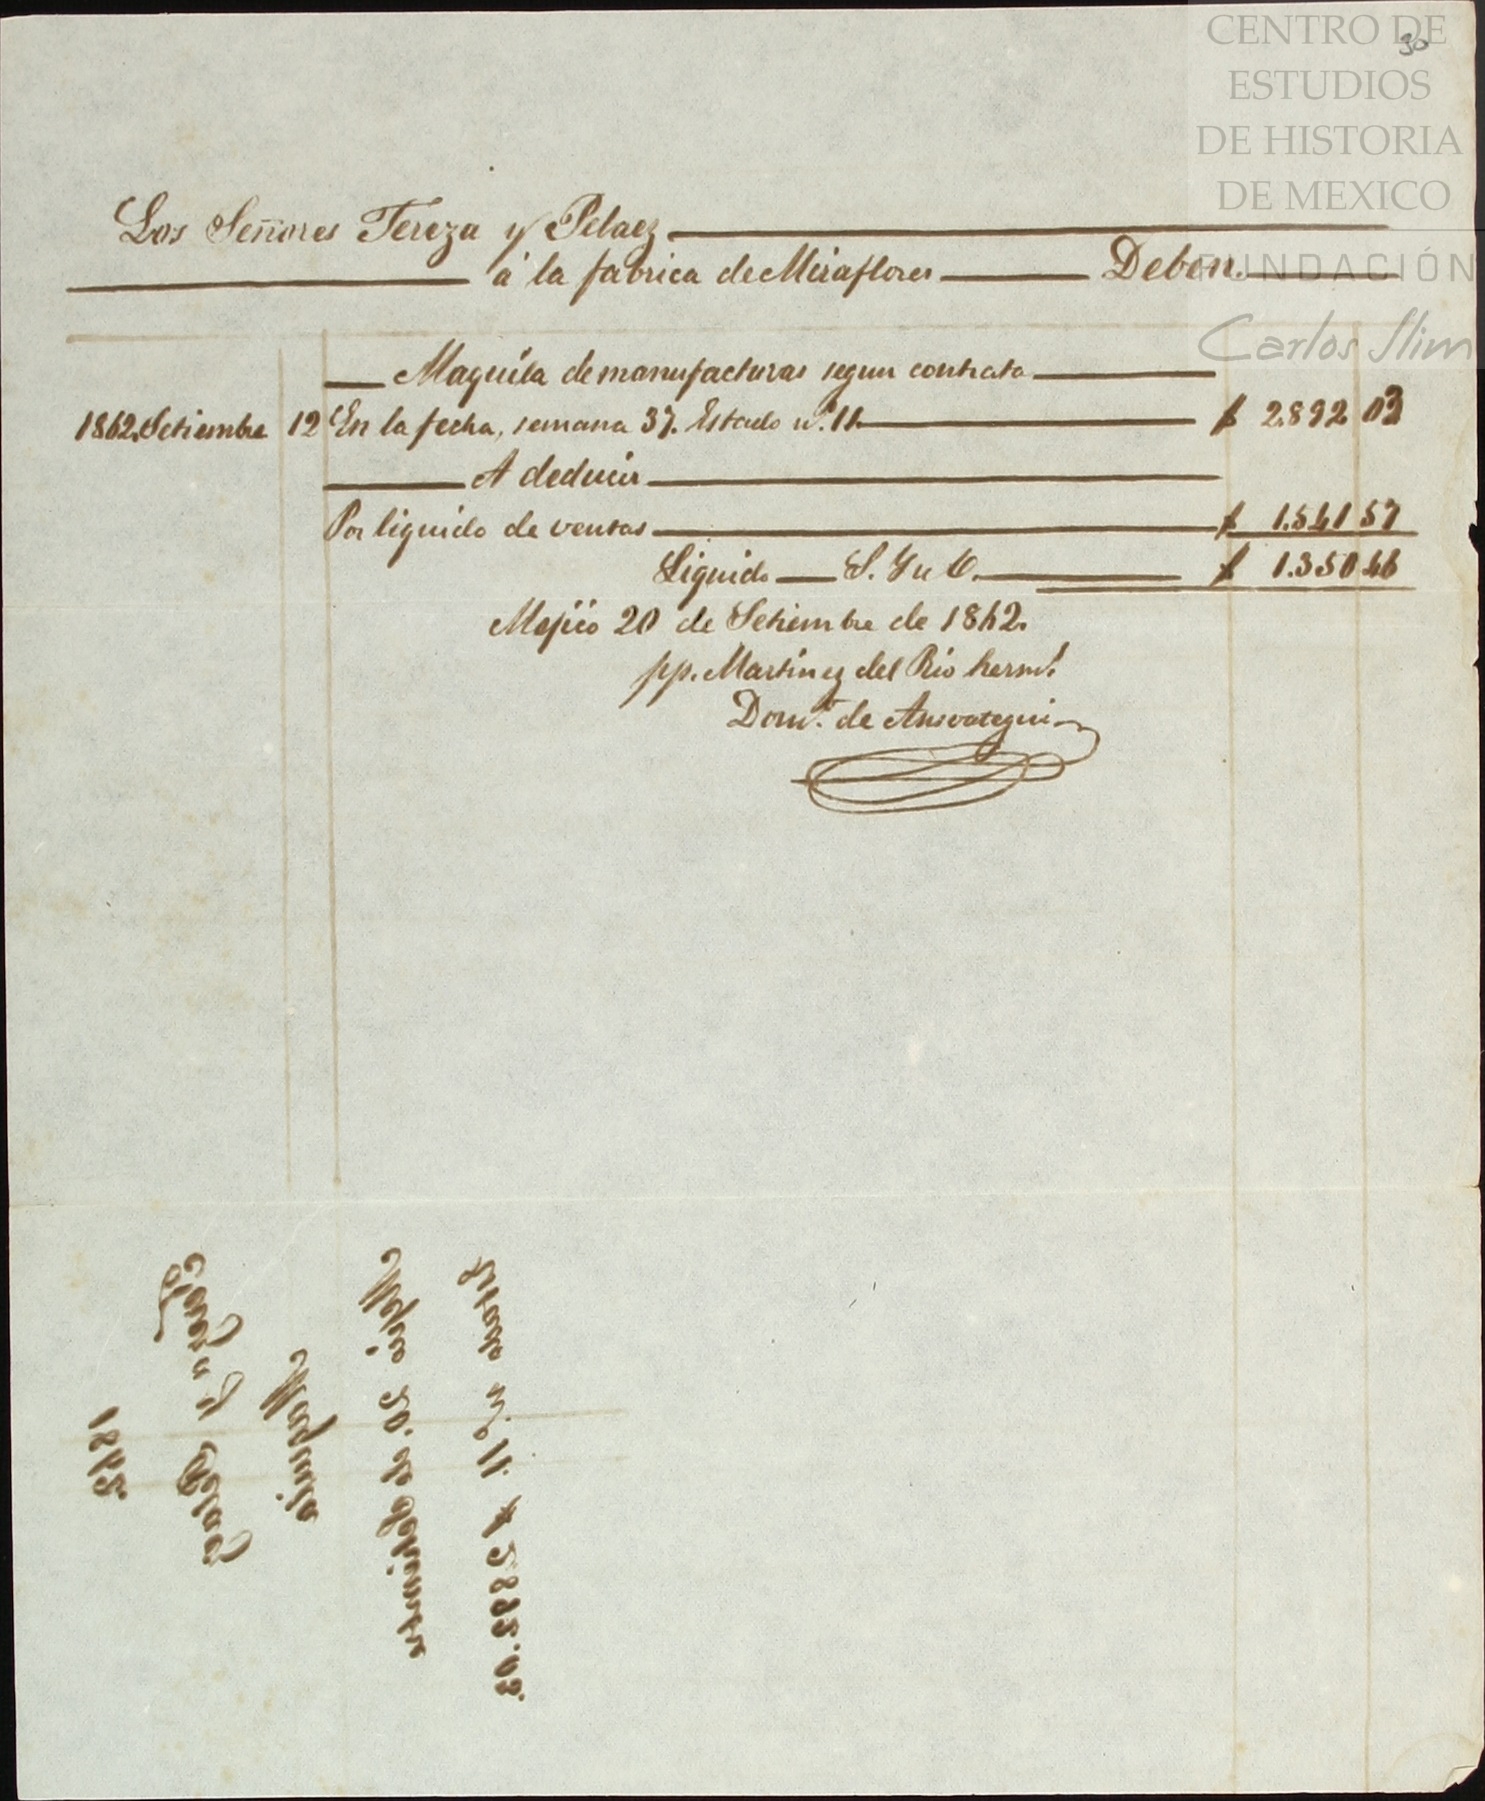 30
CENTRO DE
ESTUDIOS
DE HISTORIA
DE MEXICO
FUNDACIÓN
Carlos Slim
Los Señores Tereza y Pelaez
á la fabrica de Miraflores Deben.
Maquila de manufacturas segun contrata
1862 Setiembre 12 En la fecha, semana 37. Estado nº. 11. $ 2.892 03
A deducir
Por liquido de ventas $ 1.541 57
Liquido S. Y u O. $ 1.350 46
Mejico 20 de Setiembre de 1862.
pp. Martinez del Rio hermº.
Domº. de Ansoategui
1862
Maquila
Mejico 20. de Setiembre
Estado nº. 11. $ 2892.03